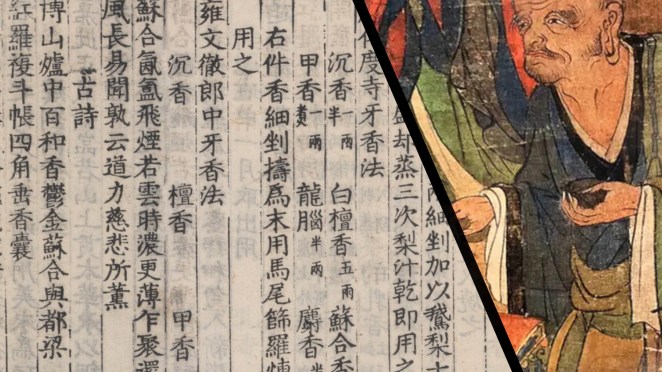 兩細剉加以鵝梨十
却蒸三次梨汁乾即用之
度寺牙香法
沉香一兩半 白檀香五兩 蘇合香
甲香一兩煮 龍腦半兩 麝香半
右件香細剉擣爲末用馬尾篩羅煉
用之
雍文徹郎中牙香法
沉香 檀香 甲香
蘇合氤氳飛煙若雲時濃更薄乍聚還
風長易聞孰云道力慈悲所薰
古詩
博山爐中百和香鬱金蘇合與都梁
紅羅複斗帳四角垂香囊